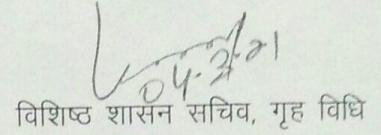 विशिष्ठ शासन सचिव, गृह विधि